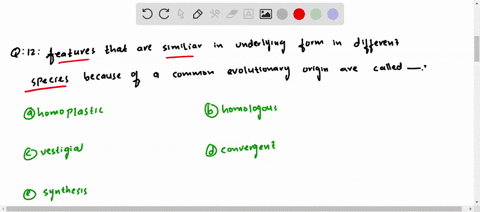 Q:12: features that are similiar in underlying form in different
species because of a common evolutionary origin are called —.
ⓐ homoplastic ⓑ homologous
ⓒ vestigial ⓓ convergent
ⓔ synthesis